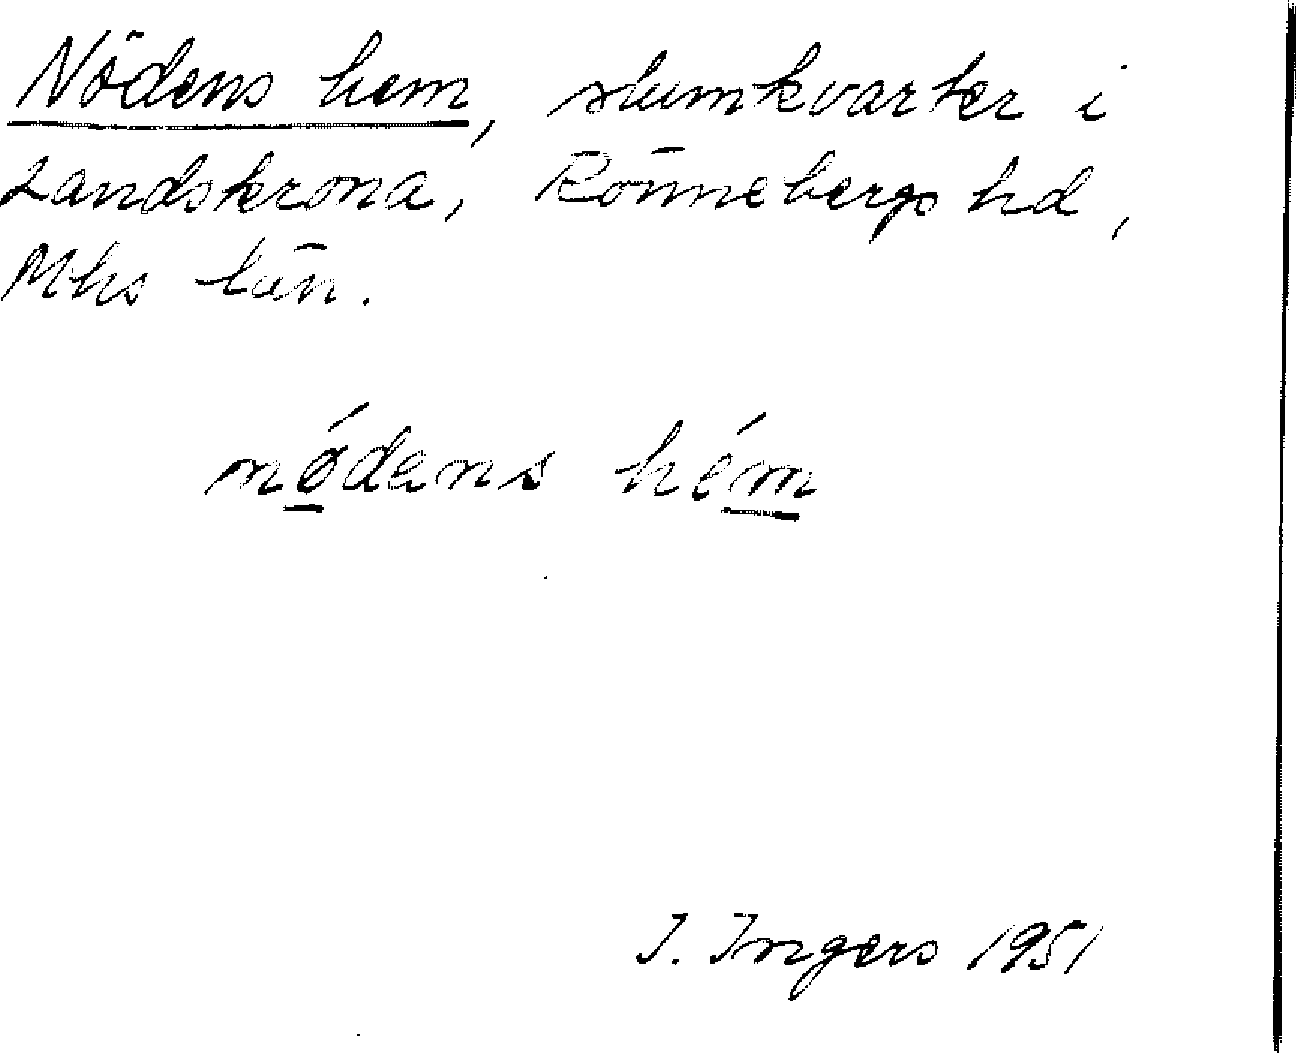 Nödens hem, slumkvarter i
Landskrona, Rönnebergs hd,
Mhs län.
nǿdens hém
I. Ingers 1951